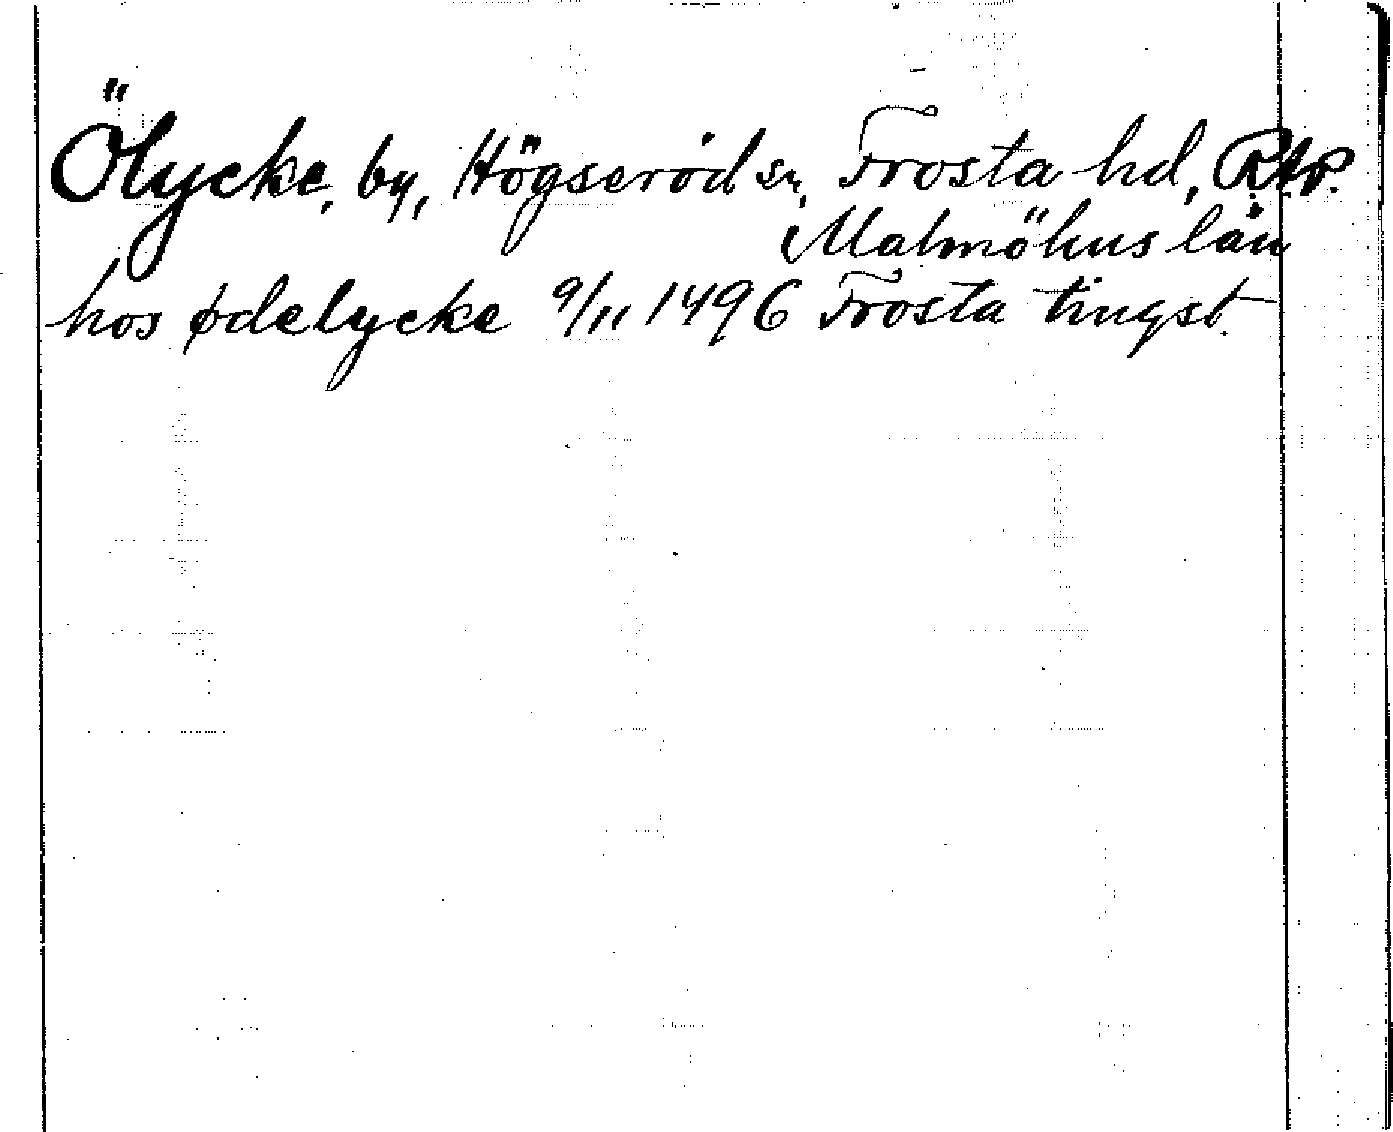 Ölycke, by, Högseröd sn, Frosta hd,
Malmöhus län
hos ødelycke 9/11 1496 Frosta tingst.